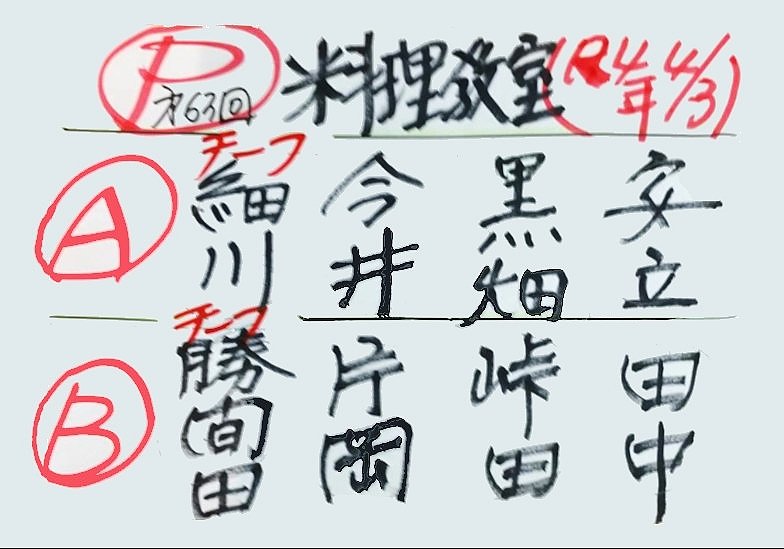 P 第63回 料理教室(R4年4/3)
チーフ
A 細川 今井 黒畑 安立
チーフ
B 勝間田 片岡 峠田 田中